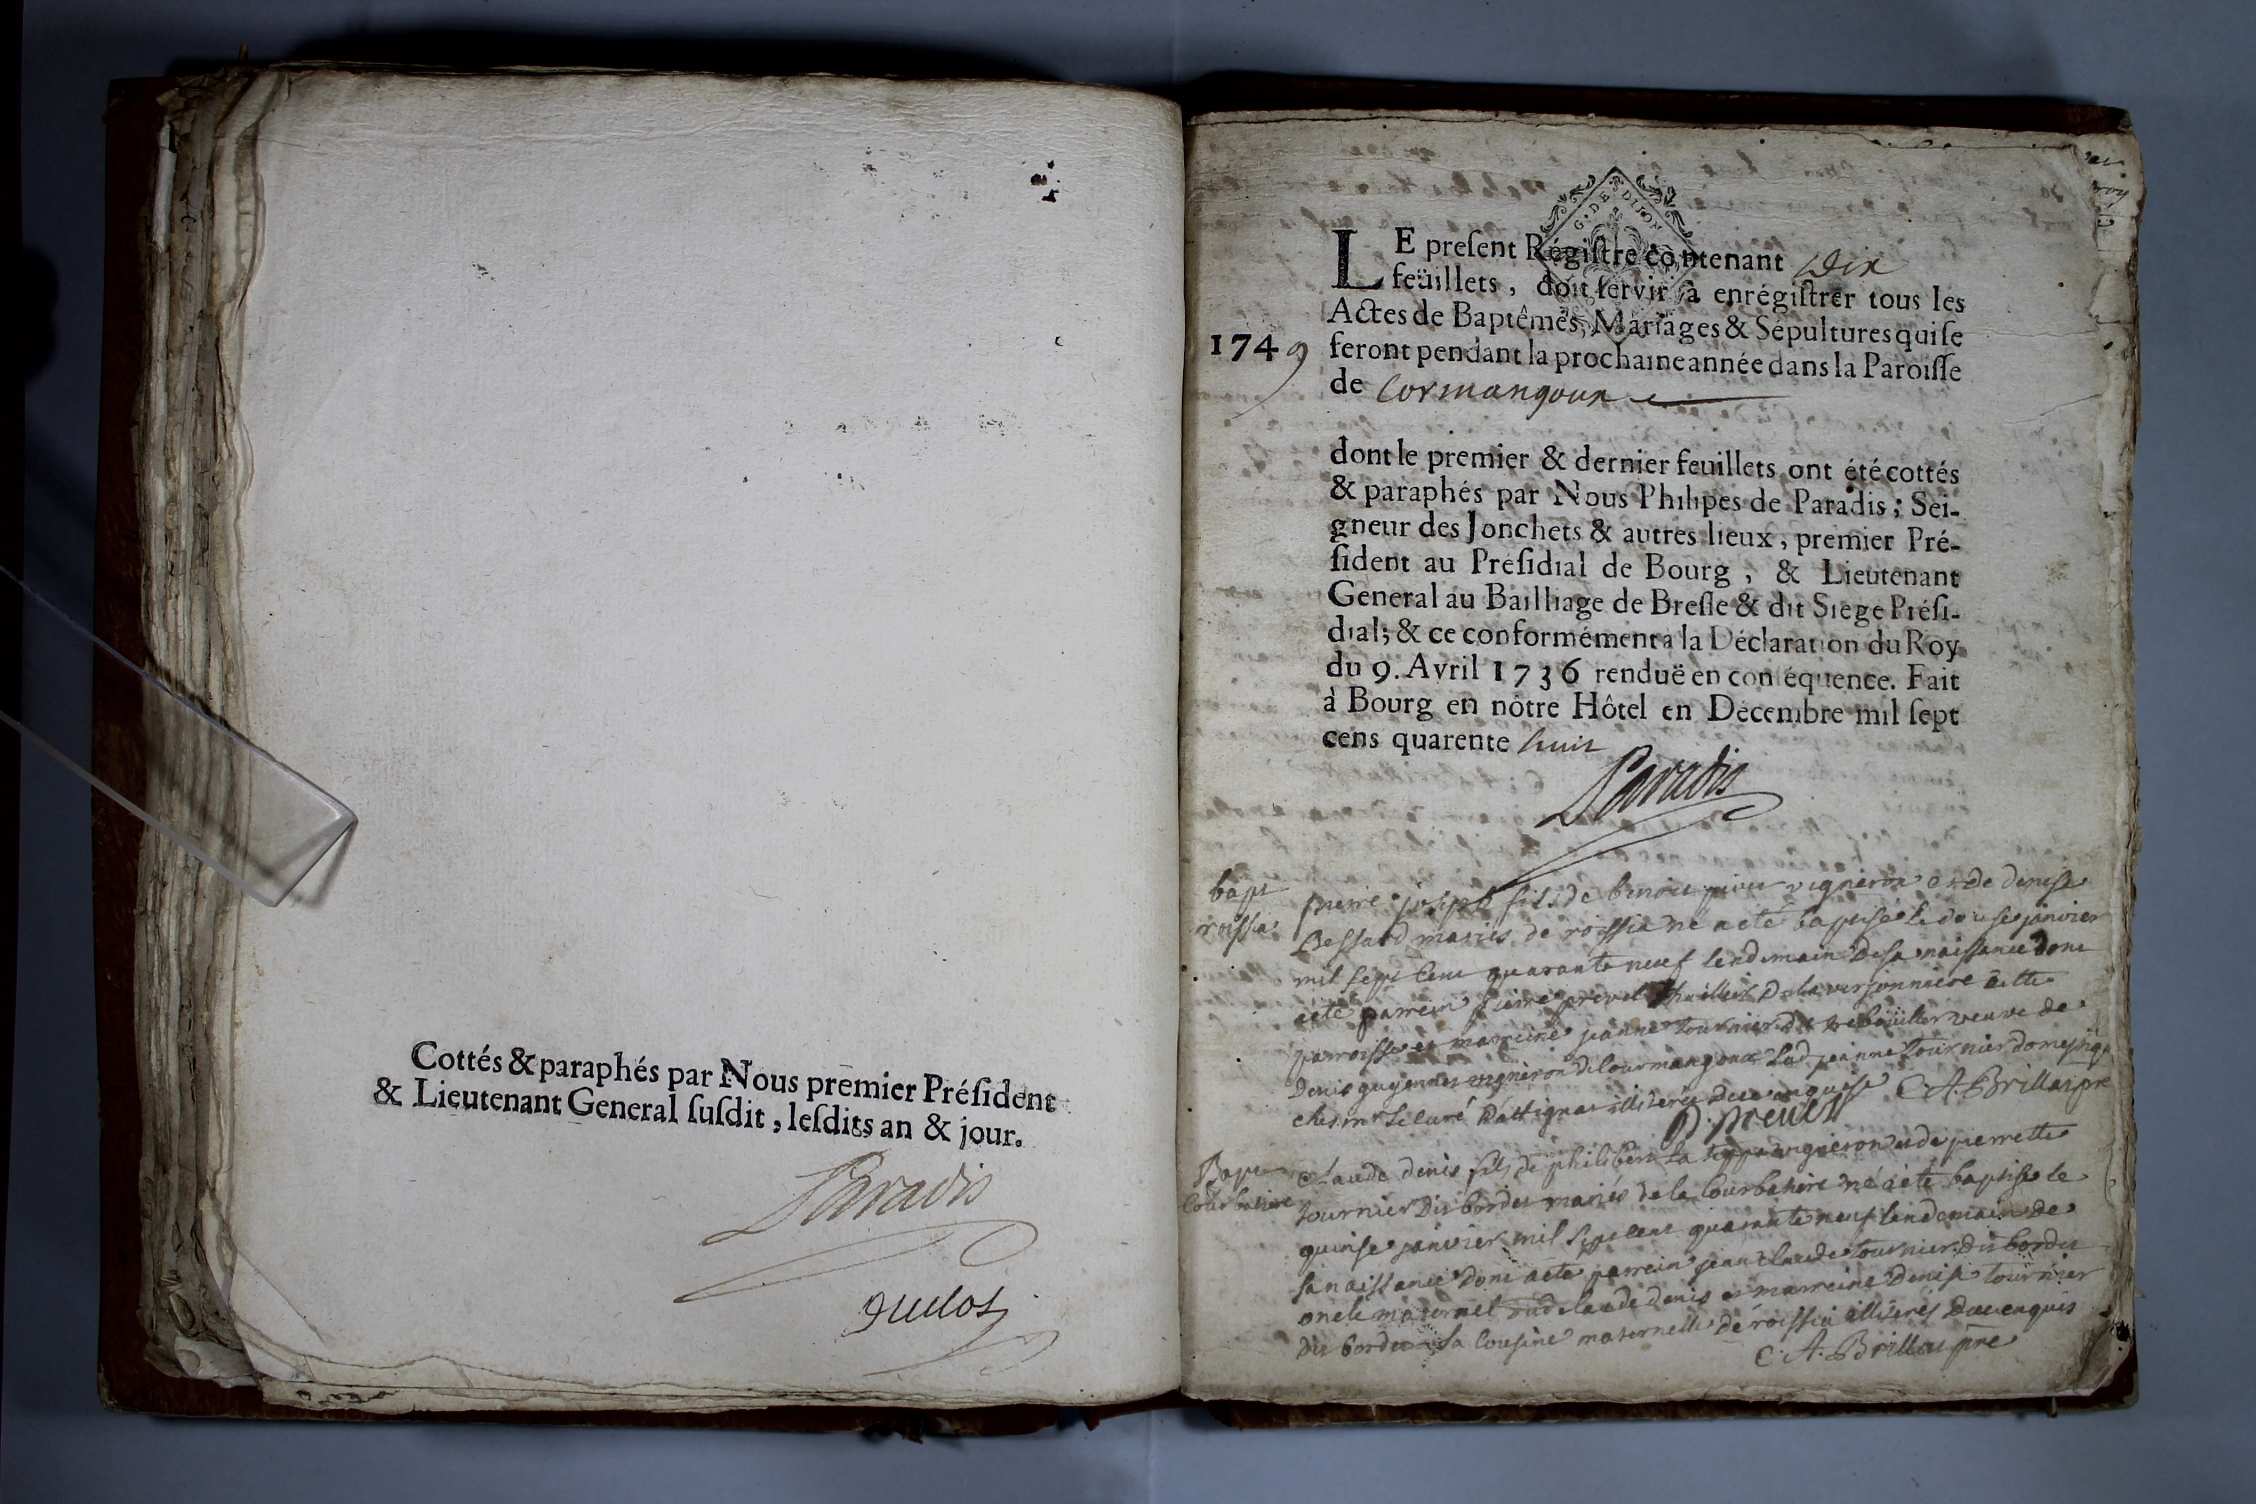 Cottés & paraphés par Nous premier Préſident
& Lieutenant General ſuſdit, leſdits an & jour.
Paradis
G. DE DIJON
LE preſent Régiſtre contenant Dix
feüillets, doit ſervir à enrégiſtrer tous les
Actes de Baptêmes, Mariages & Sépultures qui ſe
1749 feront pendant la prochaine année dans la Paroiſſe
de Cormangoux
dont le premier & dernier feuillets ont été cottés
& paraphés par Nous Philipes de Paradis; Sei-
gneur des Jonchets & autres lieux, premier Pré-
ſident au Préſidial de Bourg, & Lieutenant
General au Bailliage de Breſſe & dit Siege Préſi-
dial; & ce conformément à la Déclaration du Roy
du 9. Avril 1736 renduë en conſéquence. Fait
à Bourg en nôtre Hôtel en Decembre mil ſept
cens quarente huit
Paradis
bapt pierre joseph fils de benoit vigneron et de denise
roissia Bessard mariés de roissia né a eté baptisé le douse janvier
mil sept cent quarante neuf lendemain de sa naissance dont
a eté parrein pierre prevel de la versonniere cette
parroisse et marreine jeanne tournier veuve de
denis guyennet vigneron de Courmangoux lad jeanne tournier domestique
ches mr le curé illiterée de ce enquise C. A. Brillat pre
P. prevel
Bapt Claude denis fils de philibert la teppe vigneron et de pierrette
Courbatiere tournier dit bordet mariés de la Courbatiere né a eté baptisé le
quinse janvier mil sept cent quarante neuf lendemain de
sa naissance dont a eté parrein jean claude tournier dit bordet
oncle maternel dud claude denis et marreine denise tournier
dit bordet sa cousine maternelle de roissia illiterés de ce enquis
C. A. Brillat pre